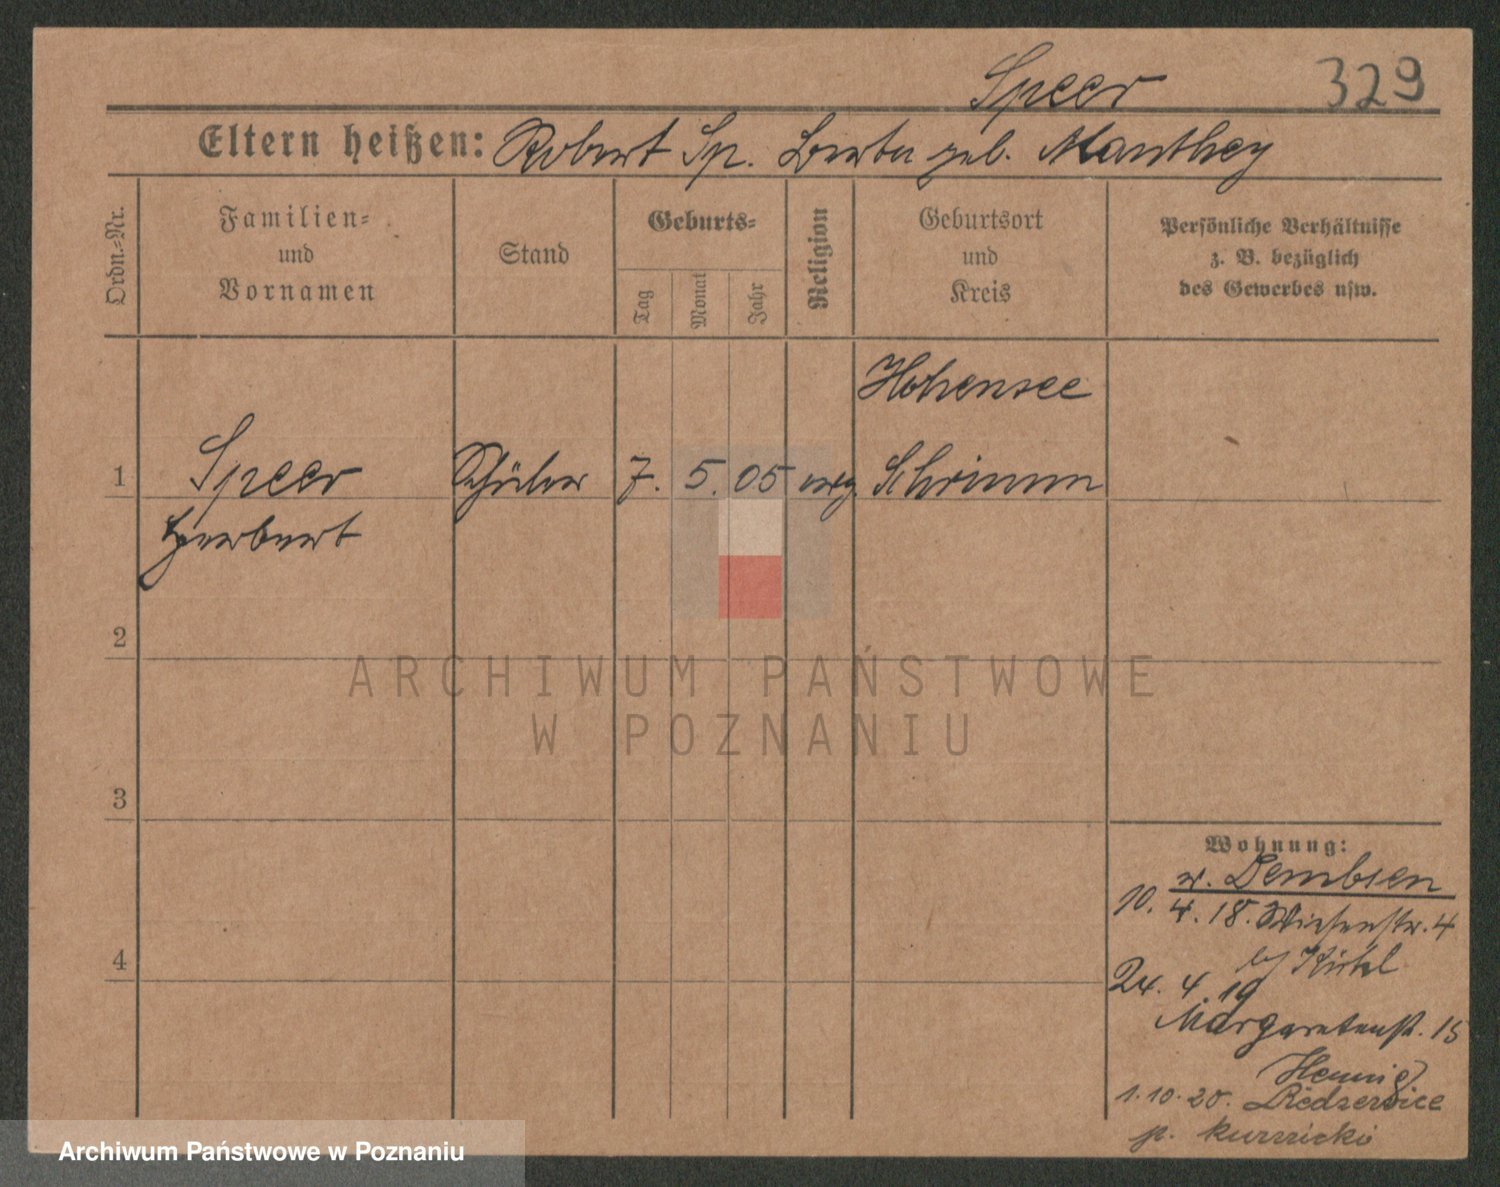 Speer 329
Eltern heißen: Robert Sp. Berta geb. Manthey
Ordn.-Nr.
Familien-
und
Vornamen
Stand
Geburts-
Tag
Monat
Jahr
Religion
Geburtsort
und
Kreis
Persönliche Verhältnisse
z. B. bezüglich
des Gewerbes usw.
Hohensee
1 Speer Schüler 7. 5. 05 evg. Schrimm
Herbert
2
3
4
Wohnung:
v. Dembsen
10. 4. 18. Wiesenstr. 4
24. 4. 19
Margaretenstr. 15
Hennig
1.10.20. Biedzerwice
p. kurnicki
ARCHIWUM PAŃSTWOWE
W POZNANIU
Archiwum Państwowe w Poznaniu